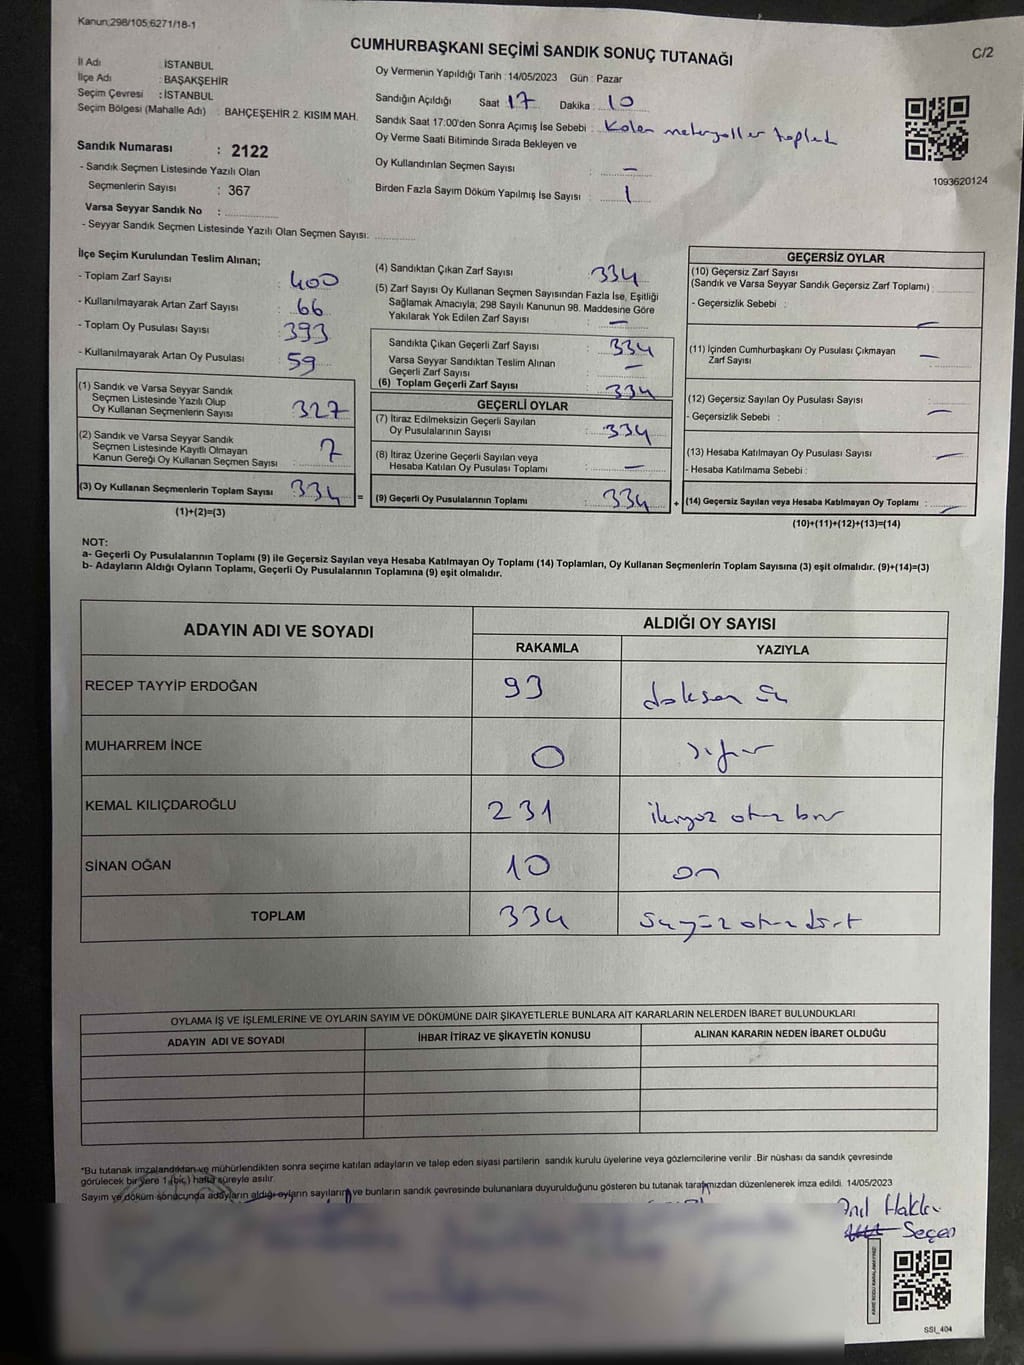 Kanun;298/105;6271/18-1
C/2
CUMHURBAŞKANI SEÇİMİ SANDIK SONUÇ TUTANAĞI
İl Adı : İSTANBUL
İlçe Adı : BAŞAKŞEHİR
Seçim Çevresi : İSTANBUL
Seçim Bölgesi (Mahalle Adı) : BAHÇEŞEHİR 2. KISIM MAH.
Sandık Numarası : 2122
- Sandık Seçmen Listesinde Yazılı Olan
Seçmenlerin Sayısı : 367
Varsa Seyyar Sandık No :
- Seyyar Sandık Seçmen Listesinde Yazılı Olan Seçmen Sayısı:
Oy Vermenin Yapıldığı Tarih : 14/05/2023 Gün : Pazar
Sandığın Açıldığı Saat 17 Dakika : 10
Sandık Saat 17:00'den Sonra Açımış İse Sebebi : Kalan materyaller
Oy Verme Saati Bitiminde Sırada Bekleyen ve
Oy Kullandırılan Seçmen Sayısı : —
Birden Fazla Sayım Döküm Yapılmış İse Sayısı : 1
1093620124
İlçe Seçim Kurulundan Teslim Alınan;
- Toplam Zarf Sayısı : 400
- Kullanılmayarak Artan Zarf Sayısı : 66
- Toplam Oy Pusulası Sayısı : 393
- Kullanılmayarak Artan Oy Pusulası : 59
(1) Sandık ve Varsa Seyyar Sandık
Seçmen Listesinde Yazılı Olup
Oy Kullanan Seçmenlerin Sayısı : 327
(2) Sandık ve Varsa Seyyar Sandık
Seçmen Listesinde Kayıtlı Olmayan
Kanun Gereği Oy Kullanan Seçmen Sayısı : 7
(3) Oy Kullanan Seçmenlerin Toplam Sayısı 334 =
(1)+(2)=(3)
(4) Sandıktan Çıkan Zarf Sayısı 334
(5) Zarf Sayısı Oy Kullanan Seçmen Sayısından Fazla İse, Eşitliği
Sağlamak Amacıyla; 298 Sayılı Kanunun 98. Maddesine Göre
Yakılarak Yok Edilen Zarf Sayısı : —
Sandıkta Çıkan Geçerli Zarf Sayısı : 334
Varsa Seyyar Sandıktan Teslim Alınan
Geçerli Zarf Sayısı : —
(6) Toplam Geçerli Zarf Sayısı 334
GEÇERLİ OYLAR
(7) İtiraz Edilmeksizin Geçerli Sayılan
Oy Pusulalarının Sayısı : 334
(8) İtiraz Üzerine Geçerli Sayılan veya
Hesaba Katılan Oy Pusulası Toplamı : —
(9) Geçerli Oy Pusulalarının Toplamı : 334 +
GEÇERSİZ OYLAR
(10) Geçersiz Zarf Sayısı
(Sandık ve Varsa Seyyar Sandık Geçersiz Zarf Toplamı) :
- Geçersizlik Sebebi : —
(11) İçinden Cumhurbaşkanı Oy Pusulası Çıkmayan
Zarf Sayısı : —
(12) Geçersiz Sayılan Oy Pusulası Sayısı : —
- Geçersizlik Sebebi :
(13) Hesaba Katılmayan Oy Pusulası Sayısı : —
- Hesaba Katılmama Sebebi :
(14) Geçersiz Sayılan veya Hesaba Katılmayan Oy Toplamı : —
(10)+(11)+(12)+(13)=(14)
NOT:
a- Geçerli Oy Pusulalarının Toplamı (9) ile Geçersiz Sayılan veya Hesaba Katılmayan Oy Toplamı (14) Toplamları, Oy Kullanan Seçmenlerin Toplam Sayısına (3) eşit olmalıdır. (9)+(14)=(3)
b- Adayların Aldığı Oyların Toplamı, Geçerli Oy Pusulalarının Toplamına (9) eşit olmalıdır.
ADAYIN ADI VE SOYADI ALDIĞI OY SAYISI
RAKAMLA YAZIYLA
RECEP TAYYİP ERDOĞAN 93 doksan üç
MUHARREM İNCE 0 sıfır
KEMAL KILIÇDAROĞLU 231 ikiyüz otuz bir
SİNAN OĞAN 10 on
TOPLAM 334 üçyüz otuz dört
OYLAMA İŞ VE İŞLEMLERİNE VE OYLARIN SAYIM VE DÖKÜMÜNE DAİR ŞİKAYETLERLE BUNLARA AİT KARARLARIN NELERDEN İBARET BULUNDUKLARI
ADAYIN ADI VE SOYADI İHBAR İTİRAZ VE ŞİKAYETİN KONUSU ALINAN KARARIN NEDEN İBARET OLDUĞU
*Bu tutanak imzalandıktan ve mühürlendikten sonra seçime katılan adayların ve talep eden siyasi partilerin sandık kurulu üyelerine veya gözlemcilerine verilir. Bir nüshası da sandık çevresinde
görülecek bir yere 1 (bir) hafta süreyle asılır.
Sayım ve döküm sonucunda adayların aldığı oyların sayılarını ve bunların sandık çevresinde bulunanlara duyurulduğunu gösteren bu tutanak tarafımızdan düzenlenerek imza edildi. 14/05/2023
Seçen
SSI_404